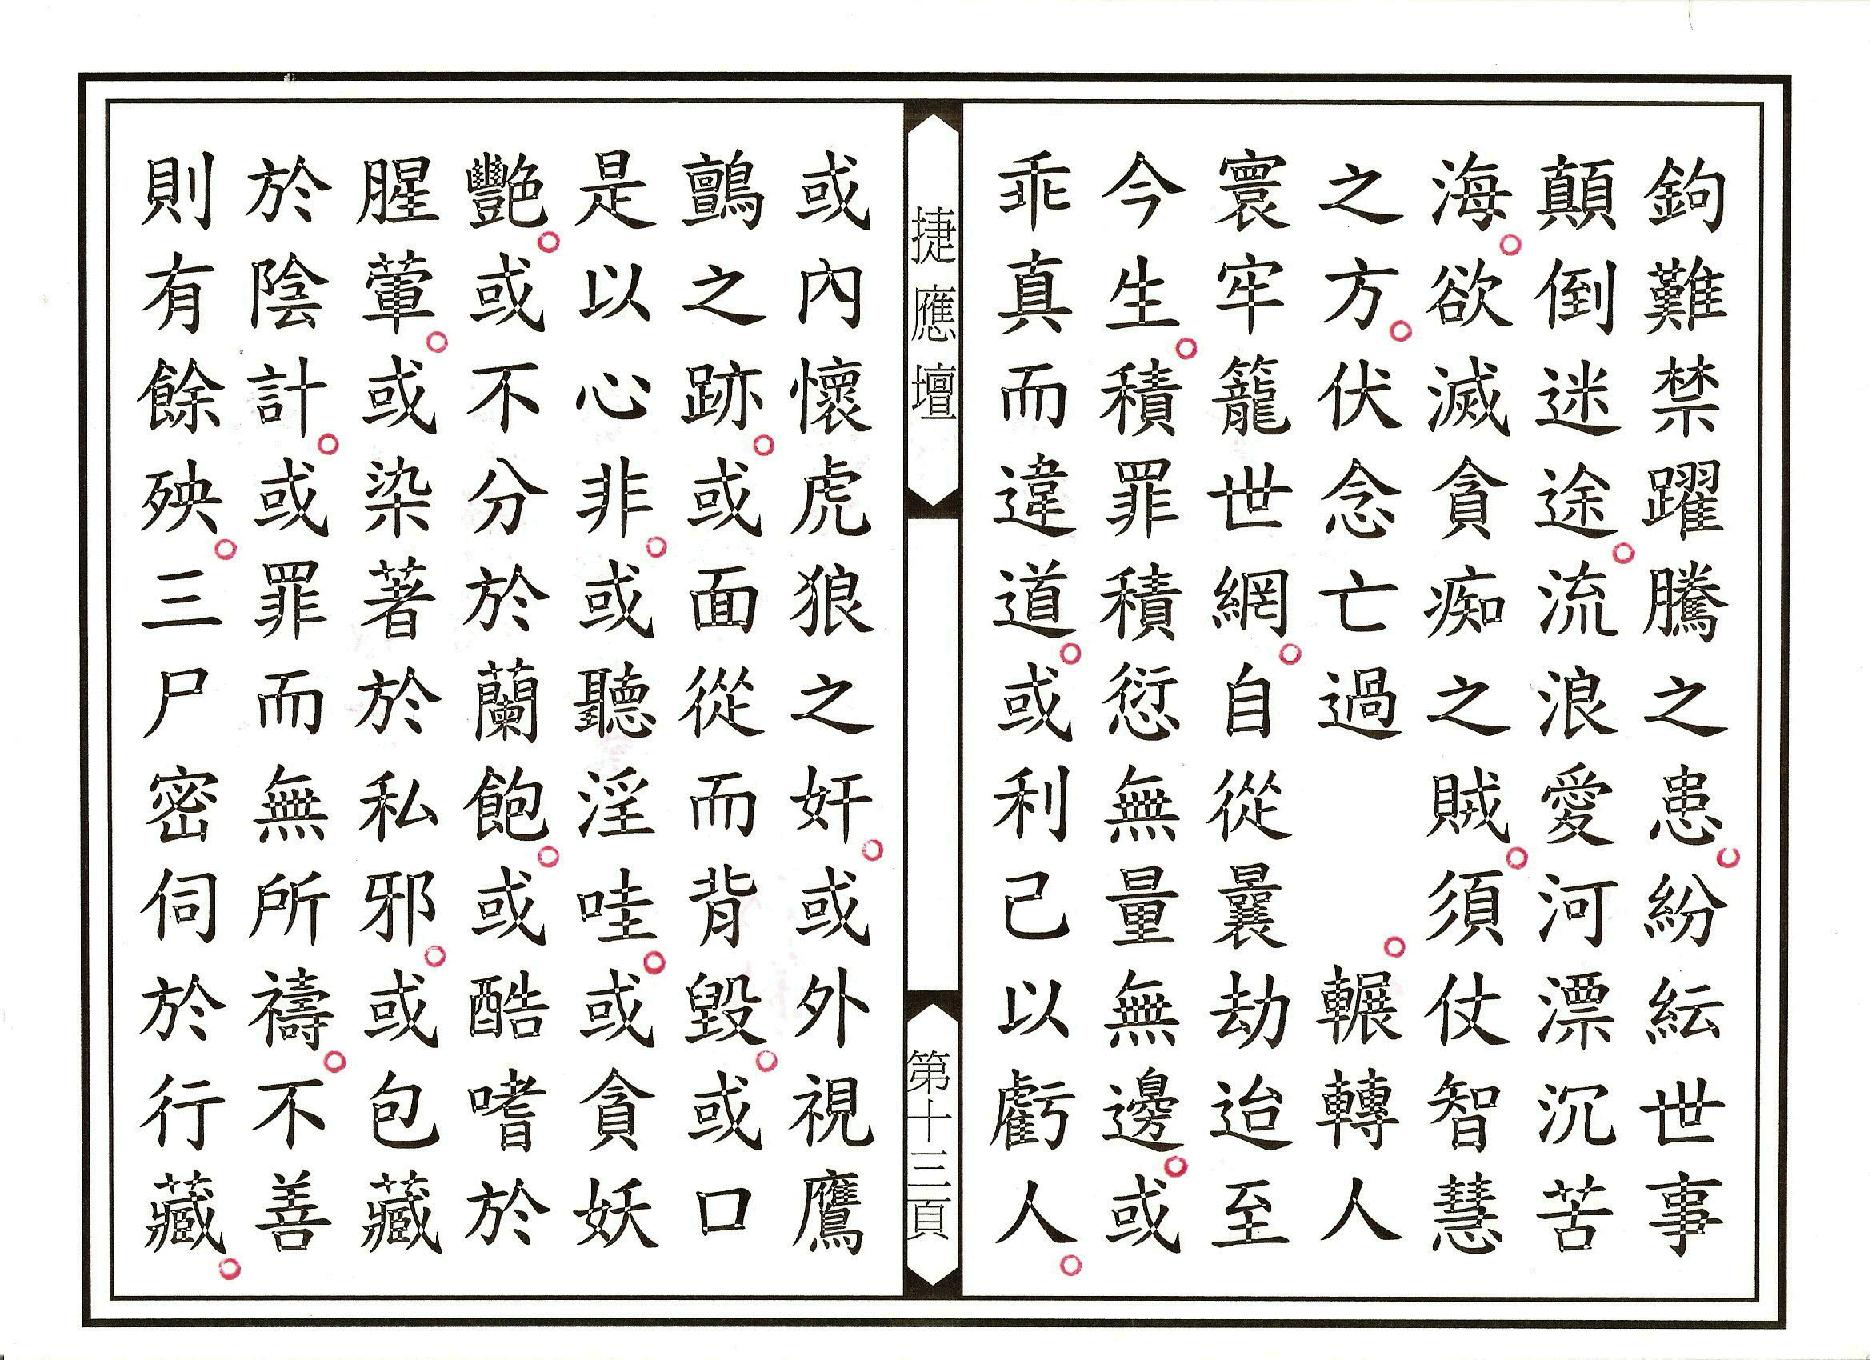 鉤難禁躍騰之患。紛紜世事
顛倒迷途。流浪愛河漂沉苦
海。欲滅貪痴之賊。須仗智慧
之方。伏念亡過。輾轉人
寰牢籠世網。自從曩劫迨至
今生。積罪積愆無量無邊。或
乖真而違道。或利己以虧人。
捷應壇
第十三頁
或內懷虎狼之奸。或外視鷹
鸇之跡。或面從而背毀。或口
是以心非。或聽淫哇。或貪妖
艷。或不分於蘭飽。或酷嗜於
腥葷。或染著於私邪。或包藏
於陰計。或罪而無所禱。不善
則有餘殃。三尸密伺於行藏。